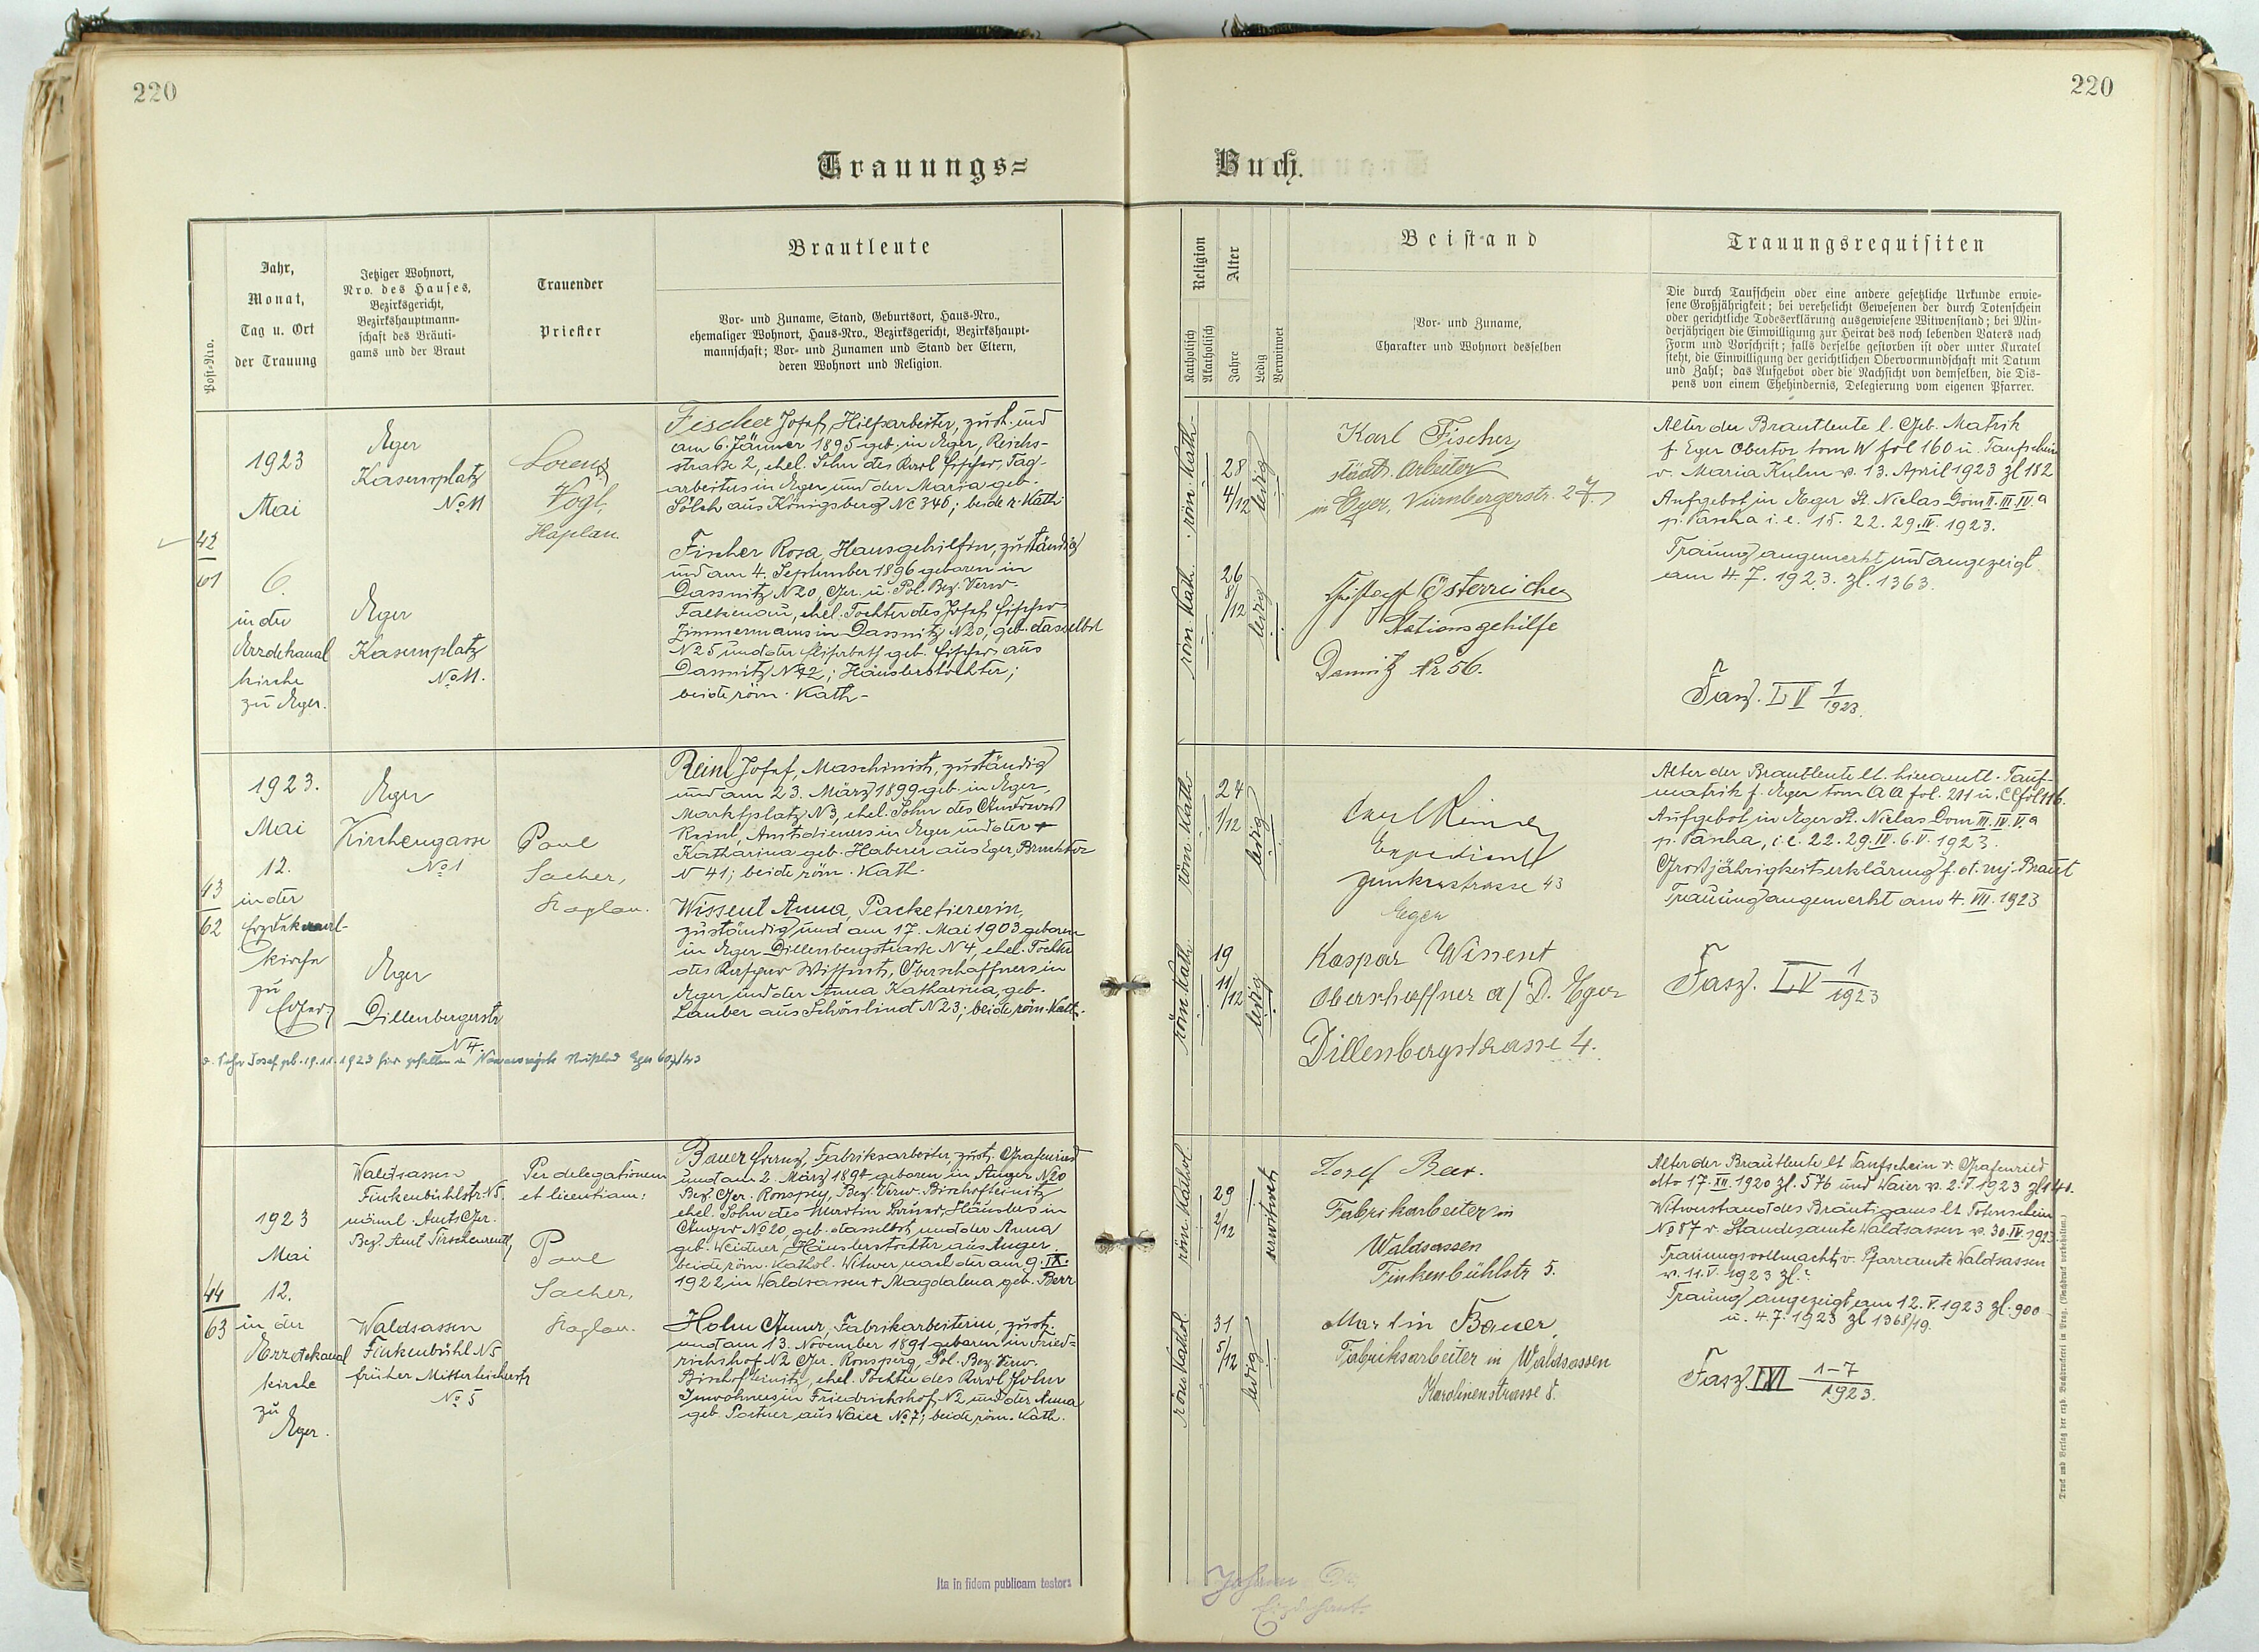 220
220
Trauungs=
Buch.
Post-Nro.
Jahr,
Monat,
Tag u. Ort
der Trauung
Jetziger Wohnort,
Nro. des Hauses,
Bezirksgericht,
Bezirkshauptmann-
schaft des Bräuti-
gams und der Braut
Trauender
Priester
Brautleute
Vor- und Zuname, Stand, Geburtsort, Haus-Nro.,
ehemaliger Wohnort, Haus-Nro., Bezirksgericht, Bezirkshaupt-
mannschaft; Vor- und Zunamen und Stand der Eltern,
deren Wohnort und Religion.
Religion
Katholisch
Akatholisch
Alter
Jahre
Ledig
Verwitwet
Beistand
Vor- und Zuname,
Charakter und Wohnort desselben
Trauungsrequisiten
Die durch Taufschein oder eine andere gesetzliche Urkunde erwie-
sene Großjährigkeit; bei verehelicht Gewesenen der durch Totenschein
oder gerichtliche Todeserklärung ausgewiesene Witwenstand; bei Min-
derjährigen die Einwilligung zur Heirat des noch lebenden Vaters nach
Form und Vorschrift; falls derselbe gestorben ist oder unter Kuratel
steht, die Einwilligung der gerichtlichen Obervormundschaft mit Datum
und Zahl; das Aufgebot oder die Nachsicht von demselben, die Dis-
pens von einem Ehehindernis, Delegierung vom eigenen Pfarrer.
42
61
1923
Mai
6.
in der
Erzdekanal
kirche
zu Eger.
Eger
Kasernplatz
No 11
Eger
Kasernplatz
No 11.
Lorenz
Vogl,
Kaplan.
Fischer Josef, Hilfsarbeiter, zust. und
am 6. Jänner 1895 geb. in Eger, Reichs-
strasse 2, ehel. Sohn des Karl Fischer, Tag-
arbeiters in Eger und der Maria geb.
Sölch aus Königsberg No 346; beide r. Kath.
Fischer Rosa, Hausgehilfin, zuständig
und am 4. September 1896 geboren in
Dassnitz N 20, Ger. u. Pol. Bez. Verw.
Falkenau, ehel. Tochter des Josef Fischer
Zimmermanns in Dassnitz N 20, geb. dasselbst
N 25 und der Elisabeth geb. Fischer aus
Dassnitz N 42; Häuslerstochter;
beide röm. Kath-
röm. Kath-
28
4/12
ledig
röm. Kath.
26
8/12
ledig
Karl Fischer,
städt. Arbeiter
in Eger, Nürnbergerstr. 27.
Österreicher
Stationsgehilfe
Nr 56.
Alter der Brautleute l. Geb. Matrik
f. Eger Obertor tom W fol 160 u. Taufschein
v. Maria Kulm v. 13. April 1923 zl 182
Aufgebot in Eger St. Niclas Dom II. III. IV. a
p. Pascha i. e. 15. 22. 29. IV. 1923.
Trauung angemerkt und angezeigt
am 4. 7. 1923. zl. 1363.
Fasz. LV 1/1923.
43
62
1923.
Mai
12.
in der
Erzdekanal-
kirche
zu
Eger
Eger
Kirchengasse
No 1
Eger
Dillenbergerstr
N 4.
Paul
Sacher,
Kaplan.
Reinl Josef, Maschinist, zuständig
und am 23. März 1899 geb. in Eger,
Marktplatz N 3, ehel. Sohn des Andreas
Reinl, Amtsdieners in Eger und der +
Katharina geb. Haberer aus Eger, Brucktor
N 41; beide röm. Kath.
Wissent Anna, Packetiererin,
zuständig und am 17. Mai 1903 geboren
in Eger Dillenbergstrasse N 4, ehel. Tochter
des Kaspar Wissent, Oberschaffners in
Eger und der Anna Katharina, geb.
Lauber aus Schönlind N 23; beide röm. Kath.
röm. Kath.
24
1/12
ledig
röm. Kath.
19
11/12
ledig
Expedient
Junkerstrasse 43
Eger
Kaspar Wissent
Oberschaffner a/D. Eger
Dillenbergstrasse 4.
Alter der Brautleute lt. hieramtl. Tauf-
matrik f. Eger tom AA fol. 211 u. CC fol 116.
Aufgebot in Eger St. Niclas Dom III. IV. V. a
p. Pascha, i. e. 22. 29. IV. 6. V. 1923.
Grossjährigkeitserklärung f. d. mj. Braut
Trauung angemerkt am 4. VII. 1923
Fasz. LV 1/1923
44
63
1923
Mai
12.
in der
Erzdekanal
kirche
zu
Eger.
Waldsassen
Finkenbühlstr. N 5.
Amts Ger.
Bez. Amt Tirschenreuth,
Waldsassen
Finkenbühl N 5
früher Mitterteicherstr
No 5
Per delegationem
et licentiam:
Paul
Sacher,
Kaplan.
Bauer Franz, Fabriksarbeiter, zust. Grafenried
und am 2. März 1894 geboren in Anger No 20
Bez. Ger. Ronsperg, Bez. Verw. Bischofteinitz
ehel. Sohn des Martin Bauer, Häuslers in
Anger No 20, geb. dasselbst, und der Anna
geb. Weidner, Häuslerstochter aus Anger
beide röm. Kathol. Witwer nach der am 9. IX.
1922 in Waldsassen + Magdalena, geb. Berr
Holm Anna, Fabrikarbeiterin, zust.
und am 13. November 1891 geboren in Fried=
richshof N 2 Ger. Ronsperg, Pol. Bez. Verw.
Bischofteinitz, ehel. Tochter des Karl Holm
Inwohners in Friedrichshof N 2 und der Anna
geb. Portner aus Waier No 7; beide röm. Kath.
röm. Kathol.
29
2/12
verwitwet
röm. Kathol.
31
5/12
ledig
Josef Bar.
Fabrikarbeiter in
Waldsassen
Finkenbühlstr 5.
Martin Bauer,
Fabriksarbeiter in Waldsassen
Karolinenstrasse 8.
Alter der Brautleute lt Taufschein v. Grafenried
dto 17. XII. 1920 zl. 576 und Waier v. 2. V. 1923 zl 140.
Witwerstand des Bräutigams lt Totenschein
No 87 v. Standesamte Waldsassen v. 30. IV. 1923.
Trauungsvollmacht v. Pfarramte Waldsassen
v. 11. V. 1923 zl.?
Trauung angezeigt am 12. V. 1923 zl. 900
u. 4. 7. 1923 zl 1368/19.
Fasz. LVI 1-7/1923.
Ita in fidem publicam testor:
Johann
Erzdechant.
Druck und Verlag der erzb. Buchdruckerei in Prag. (Nachdruck vorbehalten.)